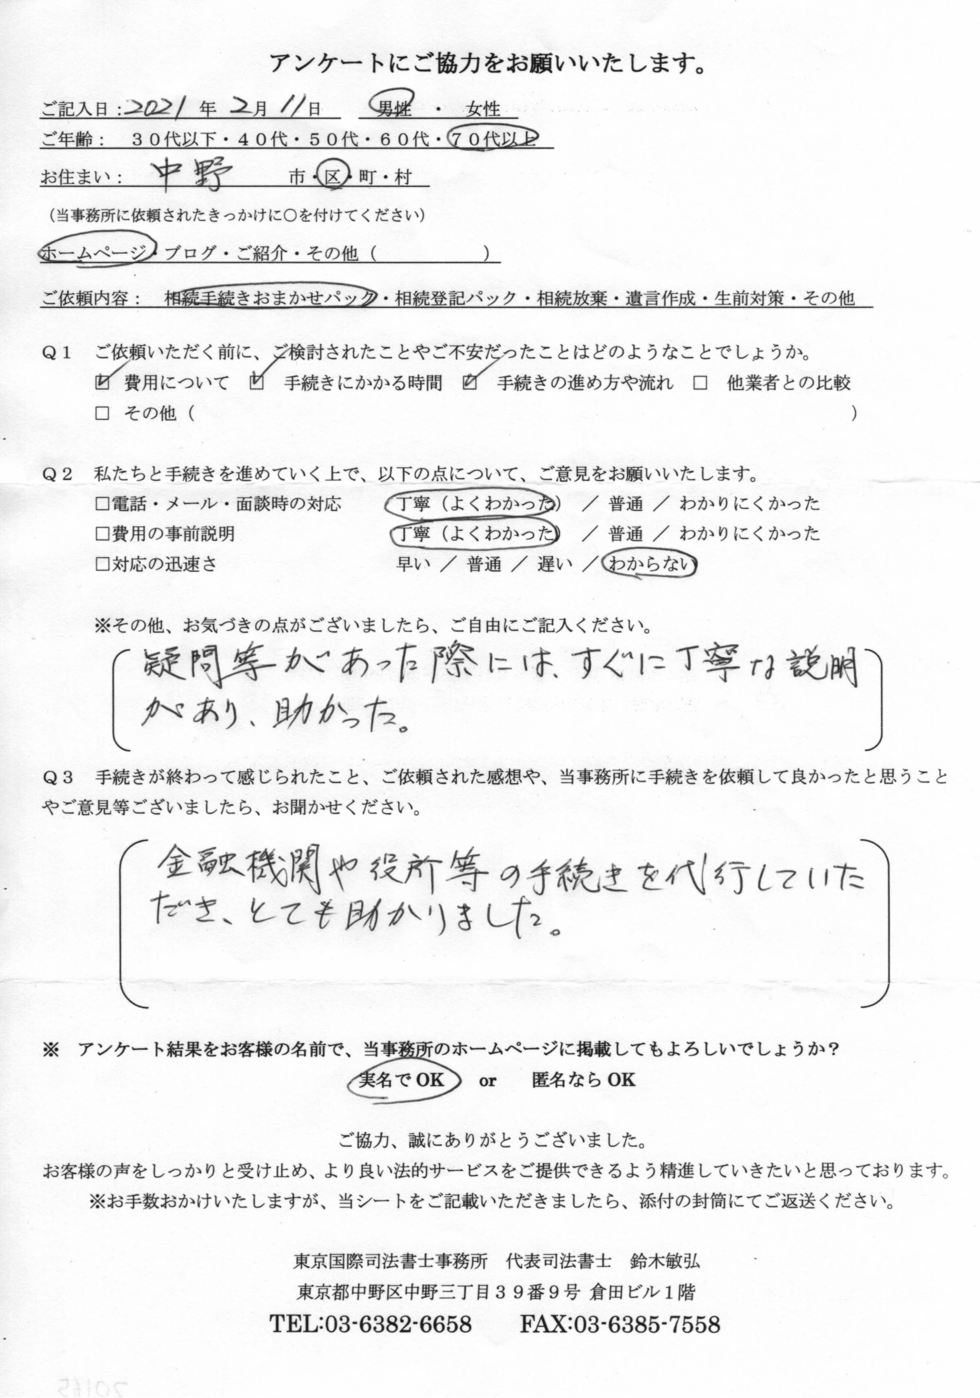 アンケートにご協力をお願いいたします。
ご記入日：2021 年 2月 11日　男性 ・ 女性
ご年齢： ３０代以下・４０代・５０代・６０代・７０代以上
お住まい： 中野 市・区・町・村
（当事務所に依頼されたきっかけに○を付けてください）
ホームページ・ブログ・ご紹介・その他（　　　　　　）
ご依頼内容： 相続手続きおまかせパック・相続登記パック・相続放棄・遺言作成・生前対策・その他
Ｑ１　ご依頼いただく前に、ご検討されたことやご不安だったことはどのようなことでしょうか。
☑ 費用について ☑ 手続きにかかる時間 ☑ 手続きの進め方や流れ □ 他業者との比較
□ その他（　　　　　　）
Ｑ２　私たちと手続きを進めていく上で、以下の点について、ご意見をお願いいたします。
□電話・メール・面談時の対応　丁寧（よくわかった） ／ 普通 ／ わかりにくかった
□費用の事前説明　丁寧（よくわかった） ／ 普通 ／ わかりにくかった
□対応の迅速さ　早い ／ 普通 ／ 遅い ／ わからない
※その他、お気づきの点がございましたら、ご自由にご記入ください。
疑問等があった際には、すぐに丁寧な説明
があり、助かった。
Ｑ３　手続きが終わって感じられたこと、ご依頼された感想や、当事務所に手続きを依頼して良かったと思うこと
やご意見等ございましたら、お聞かせください。
金融機関や役所等の手続きを代行していた
だき、とても助かりました。
※　アンケート結果をお客様の名前で、当事務所のホームページに掲載してもよろしいでしょうか？
実名でOK　or　匿名ならOK
ご協力、誠にありがとうございました。
お客様の声をしっかりと受け止め、より良い法的サービスをご提供できるよう精進していきたいと思っております。
※お手数おかけいたしますが、当シートをご記載いただきましたら、添付の封筒にてご返送ください。
東京国際司法書士事務所　代表司法書士　鈴木敏弘
東京都中野区中野三丁目３９番９号 倉田ビル１階
TEL:03-6382-6658　FAX:03-6385-7558